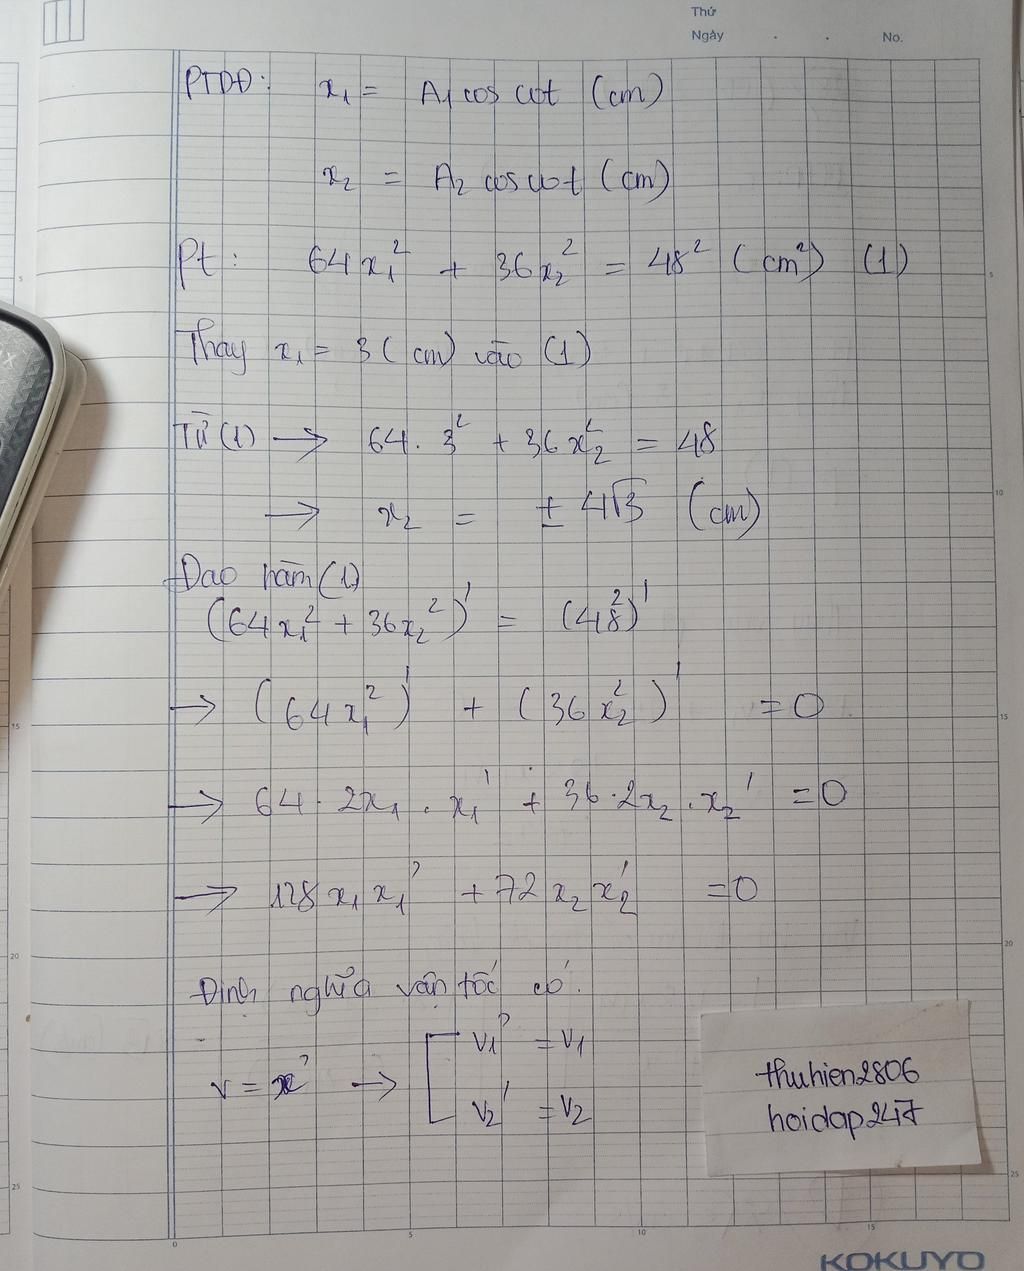 Thứ
Ngày . . No.
PTDĐ: x₁ = A₁ cos ωt (cm)
x₂ = A₂ cos ωt (cm)
Pt: 64x₁² + 36x₂² = 48² (cm²) (1)
Thay x₁ = 3 (cm) vào (1)
Từ (1) → 64 . 3² + 36x₂² = 48
→ x₂ = ± 4√3 (cm)
Đạo hàm (1)
(64x₁² + 36x₂²)' = (48²)'
→ (64x₁²)' + (36x₂²)' = 0
→ 64 . 2x₁ . x₁' + 36 . 2x₂ . x₂' = 0
→ 128 x₁ x₁' + 72 x₂ x₂' = 0
Định nghĩa vận tốc có:
v = x' → [ v₁' = v₁
v₂' = v₂
thuhien2806
hoidap247
5
10
15
20
25
0 5 10 15
KOKUYO